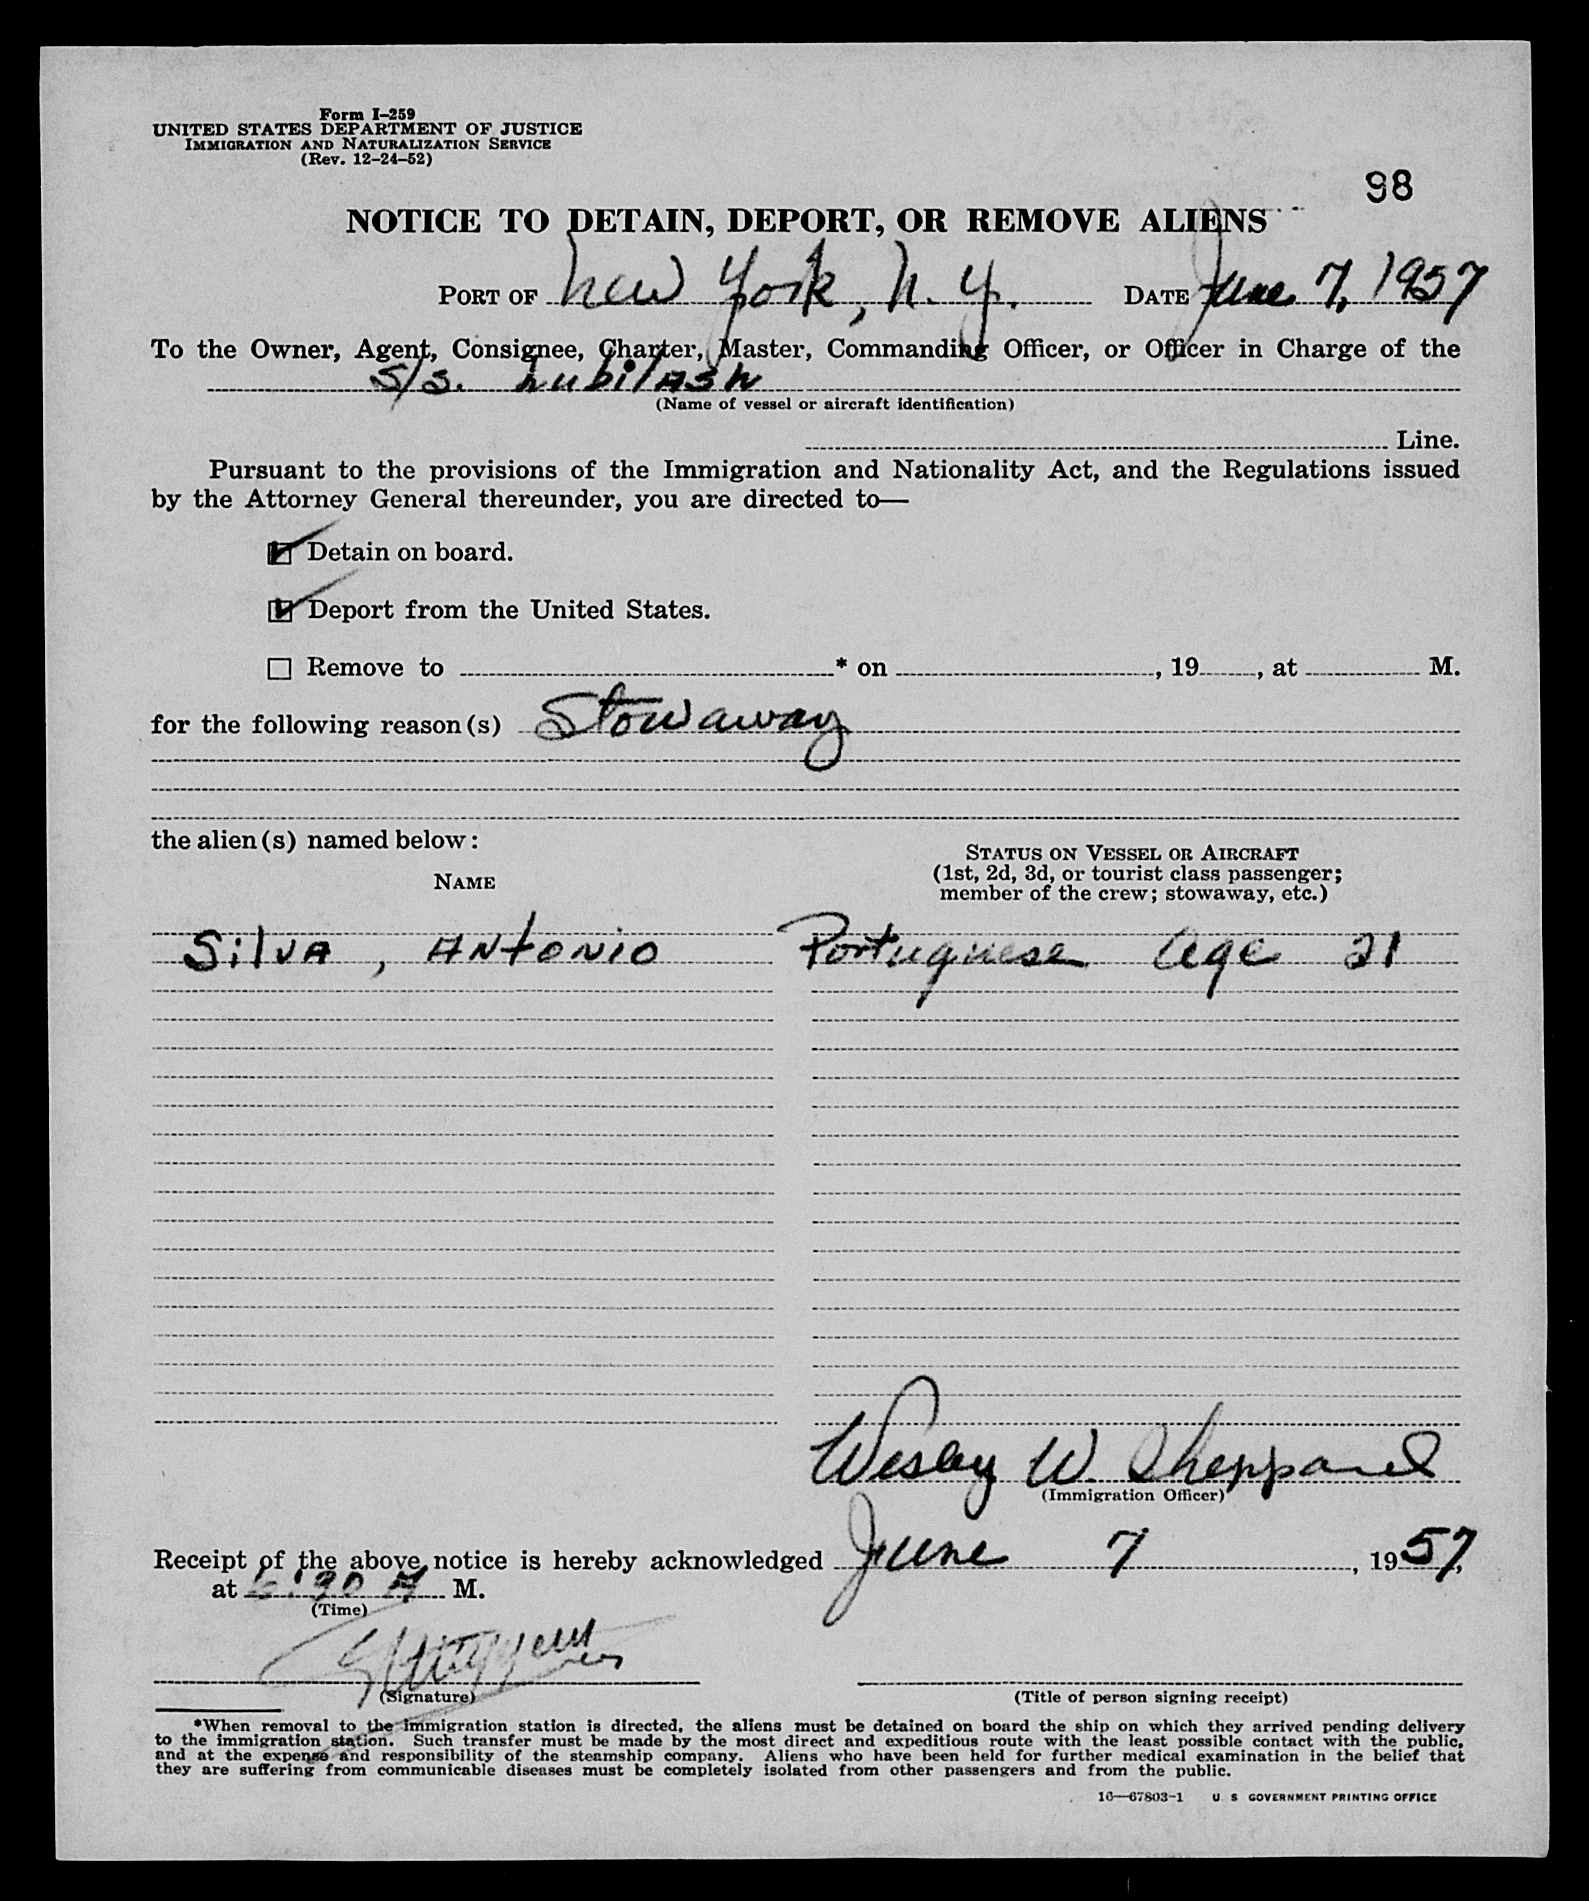 Form I-259
UNITED STATES DEPARTMENT OF JUSTICE
IMMIGRATION AND NATURALIZATION SERVICE
(Rev. 12-24-52)
98
NOTICE TO DETAIN, DEPORT, OR REMOVE ALIENS
PORT OF New York, N. Y. DATE June 7, 1957
To the Owner, Agent, Consignee, Charter, Master, Commanding Officer, or Officer in Charge of the
S/S. Lubilash
(Name of vessel or aircraft identification)
Line.
Pursuant to the provisions of the Immigration and Nationality Act, and the Regulations issued
by the Attorney General thereunder, you are directed to—
Detain on board.
Deport from the United States.
Remove to * on , 19 , at M.
for the following reason(s) Stowaway
the alien(s) named below:
NAME
STATUS ON VESSEL OR AIRCRAFT
(1st, 2d, 3d, or tourist class passenger;
member of the crew; stowaway, etc.)
Silva, Antonio Portuguese Age 21
Wesley W. Sheppard
(Immigration Officer)
Receipt of the above notice is hereby acknowledged June 7, 1957,
at A M.
(Time)
(Signature)
(Title of person signing receipt)
*When removal to the immigration station is directed, the aliens must be detained on board the ship on which they arrived pending delivery
to the immigration station. Such transfer must be made by the most direct and expeditious route with the least possible contact with the public,
and at the expense and responsibility of the steamship company. Aliens who have been held for further medical examination in the belief that
they are suffering from communicable diseases must be completely isolated from other passengers and from the public.
16—67803-1 U. S. GOVERNMENT PRINTING OFFICE